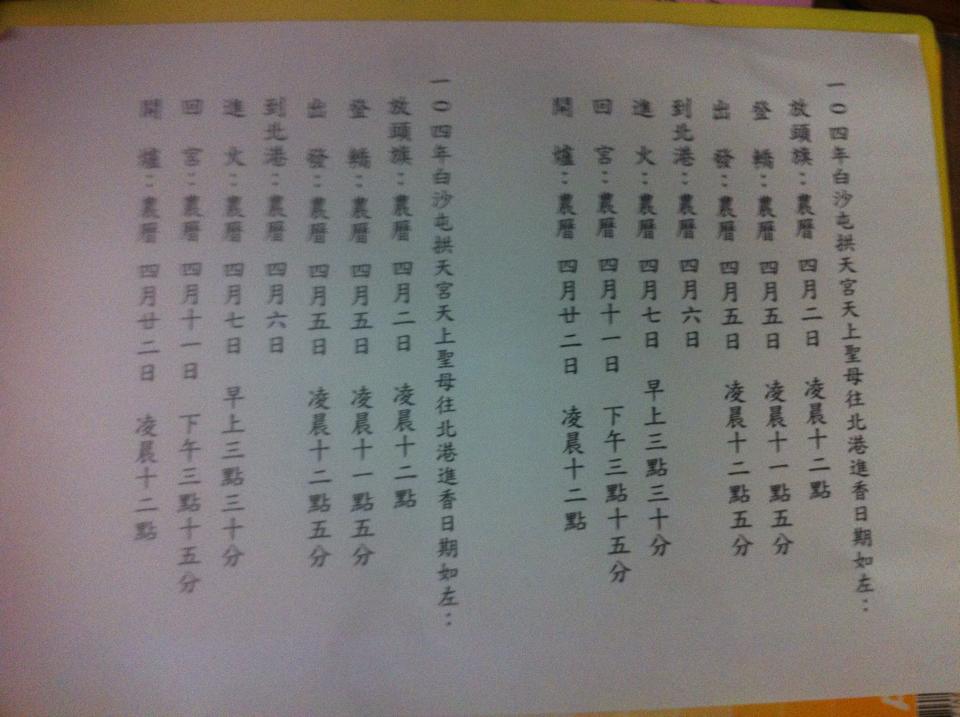 一０四年白沙屯拱天宮天上聖母往北港進香日期如左：
放頭旗：農曆 四月二日 凌晨十二點
登轎：農曆 四月五日 凌晨十一點五分
出發：農曆 四月五日 凌晨十二點五分
到北港：農曆 四月六日
進火：農曆 四月七日 早上三點三十分
回宮：農曆 四月十一日 下午三點十五分
開爐：農曆 四月廿二日 凌晨十二點
一０四年白沙屯拱天宮天上聖母往北港進香日期如左：
放頭旗：農曆 四月二日 凌晨十二點
登轎：農曆 四月五日 凌晨十一點五分
出發：農曆 四月五日 凌晨十二點五分
到北港：農曆 四月六日
進火：農曆 四月七日 早上三點三十分
回宮：農曆 四月十一日 下午三點十五分
開爐：農曆 四月廿二日 凌晨十二點